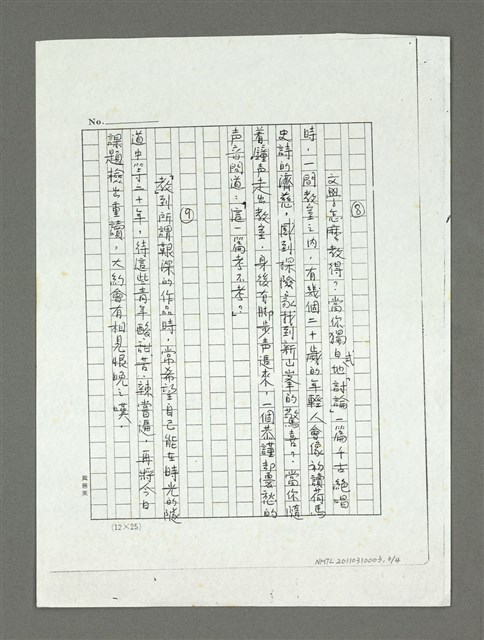 No.
⑧
文學怎麼教得?當你獨白式地「討論」一篇千古絕唱
時,一間教室之內,有幾個二十歲的年輕人會像初讀荷馬
史詩的濟慈,感到探險家找到新山峯的驚喜?當你隨
着鐘声走出教室,身後有脚步声追來,一個恭謹却憂愁的
声音問道:「這一篇考不考?」
⑨
教到所謂艱深的作品時,常希望自己能在時光的隧
道中等二十年,待這些青年酸、甜、苦、辣嘗遍,再將今日
課題檢出重讀,大約會有相見恨晚之嘆。
(12×25)
NMTL20110310003, 4/4